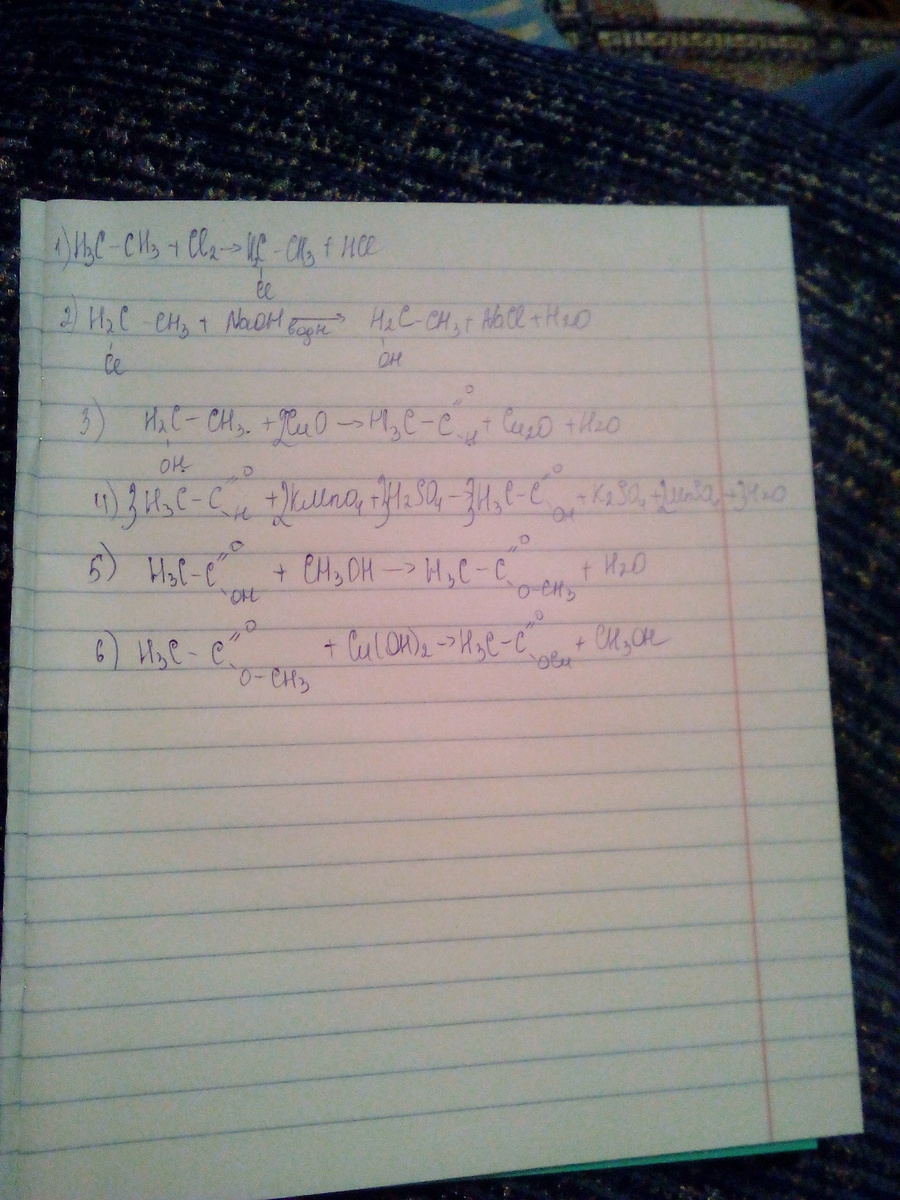 1) H3C-CH3 + Cl2 → H2C-CH3 + HCl
Cl
2) H2C-CH3 + NaOH водн → H2C-CH3 + NaCl + H2O
Cl OH
3) H2C-CH3 + 2CuO → H3C-C=O-H + Cu2O + H2O
OH
4) 3H3C-C=O-H + 2KMnO4 + 3H2SO4 - 3H3C-C=O-OH + K2SO4 + 2MnSO4 + 3H2O
5) H3C-C=O-OH + CH3OH → H3C-C=O-O-CH3 + H2O
6) H3C-C=O-O-CH3 + Cu(OH)2 → H3C-C=O-OCu + CH3OH